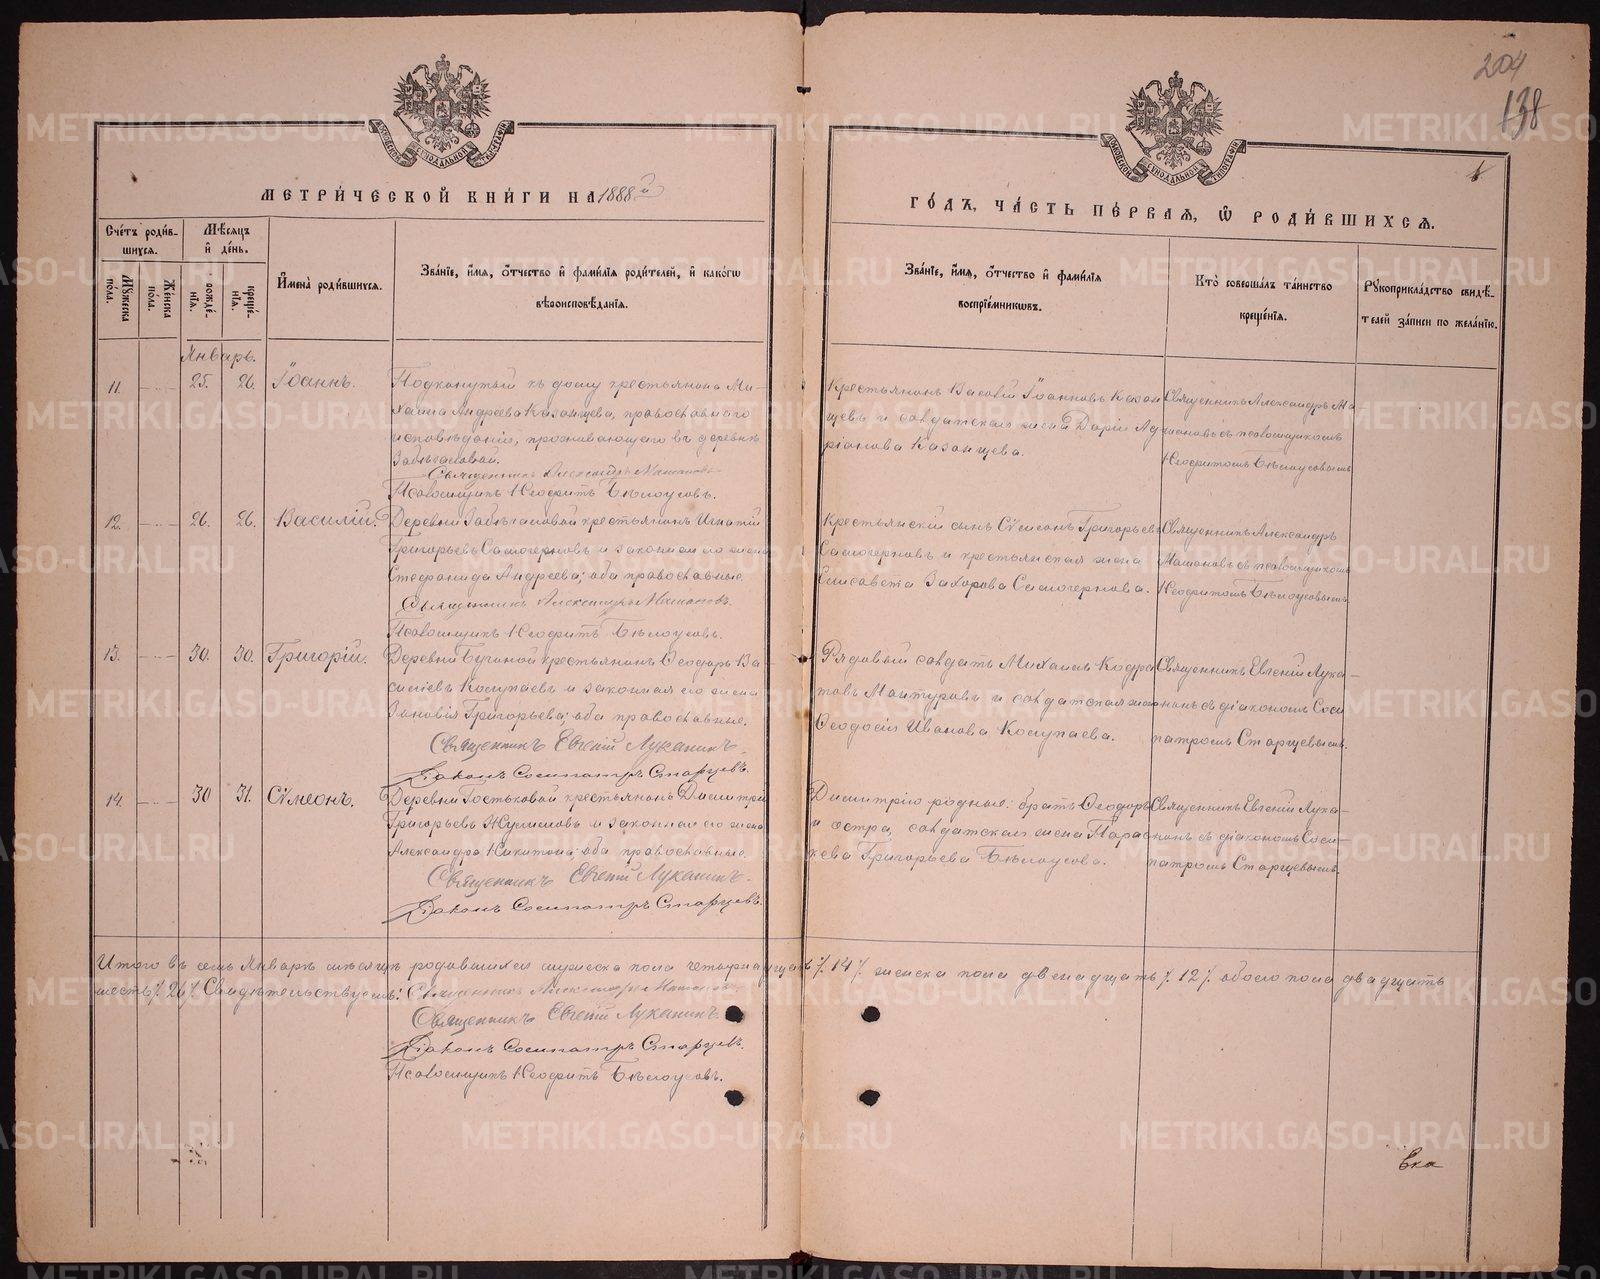 204
138
МЕТРИ́ЧЕСКОЙ КНИ́ГИ НА 1888й
ГО́ДЪ, ЧА́СТЬ ПЕ́РВАЯ, Ѡ РОДИ́ВШИХСЯ.
Сче́тъ роди́в-
шихся.
Мꙋжеска по́ла.
Же́нска по́ла.
Мѣ́сяцъ и҆ де́нь.
рожде́-нїя.
креще́-нїя.
И҆мена̀ роди́вшихся.
Зва́нїе, и҆́мя, ѻ҆́тчество и҆ фами́лїя роди́телей, и҆ како́гѡ
вѣроисповѣ́данїя.
Зва́нїе, и҆́мя, ѻ҆́тчество и҆ фами́лїя
воспрїе́мникѡвъ.
Кто̀ соверша́лъ та́инство
креще́нїя.
Рꙋкоприкла́дство свидѣ́-
телей за́писи по жела́нїю.
Январь.
11. 25. 26. Іоаннъ.
Подкинутый къ дому крестьянина Ми-
хаила Андреева Казанцева, православнаго
исповѣданія, проживающаго въ деревнѣ
Священникъ Александръ
Псаломщикъ Неофитъ Бѣлоусовъ.
Крестьянинъ Василій Іоанновъ Казан
цевъ и солдатская жена Дарія Ад
ріанова Казанцева.
Священникъ Александръ
съ псаломщикомъ
Неофитомъ Бѣлоусовымъ
12. 26. 26. Василій.
Деревни крестьянинъ Игнатій
Григорьевъ Самочерновъ и законная его жена
Стефанида Андреева; оба православные.
Священникъ Александръ
Псаломщикъ Неофитъ Бѣлоусовъ.
Крестьянскій сынъ Сѵмеонъ Григорьевъ
Самочерновъ и крестьянская жена
Елисавета Захарова Самочернова.
Священникъ Александръ
съ псаломщикомъ
Неофитомъ Бѣлоусовымъ
13. 30. 30. Григорій.
Деревни крестьянинъ Ѳеодоръ Ва
силіевъ Косупаевъ и законная его жена
Зиновія Григорьева; оба православные.
Священникъ Евгеній Луканинъ.
Діаконъ Сосипатръ Старцевъ.
Рядовый солдатъ Михаилъ Кодра
товъ Мантуровъ и солдатская жена
Ѳеодосія Иванова Косупаева.
Священникъ Евгеній Лука-
нинъ съ діакономъ Соси
патромъ Старцевымъ.
14. 30 31. Сѵмеонъ.
Деревни Гостьковой крестьянинъ Димитрій
Григорьевъ и законная его жена
Александра Никитина; оба православные.
Священникъ Евгеній Луканинъ.
Діаконъ Сосипатръ Старцевъ.
Димитрію родные: братъ Ѳеодоръ
и сестра, солдатская жена Парас
кева Григорьева Бѣлоусова.
Священникъ Евгеній Лука-
нинъ съ діакономъ Соси-
патромъ Старцевымъ.
Итого въ семъ Январѣ мѣсяцѣ родившихся мужеска пола четырнадцать /. 14 /. женска пола двенадцать /. 12 /. обоего пола двадцать
шесть /. 26 /. Свидѣтельствуемъ: Священникъ Александръ
Священникъ Евгеній Луканинъ.
Діаконъ Сосипатръ Старцевъ.
Псаломщикъ Неофитъ Бѣлоусовъ.
вка
METRIKI.GASO-URAL.RU